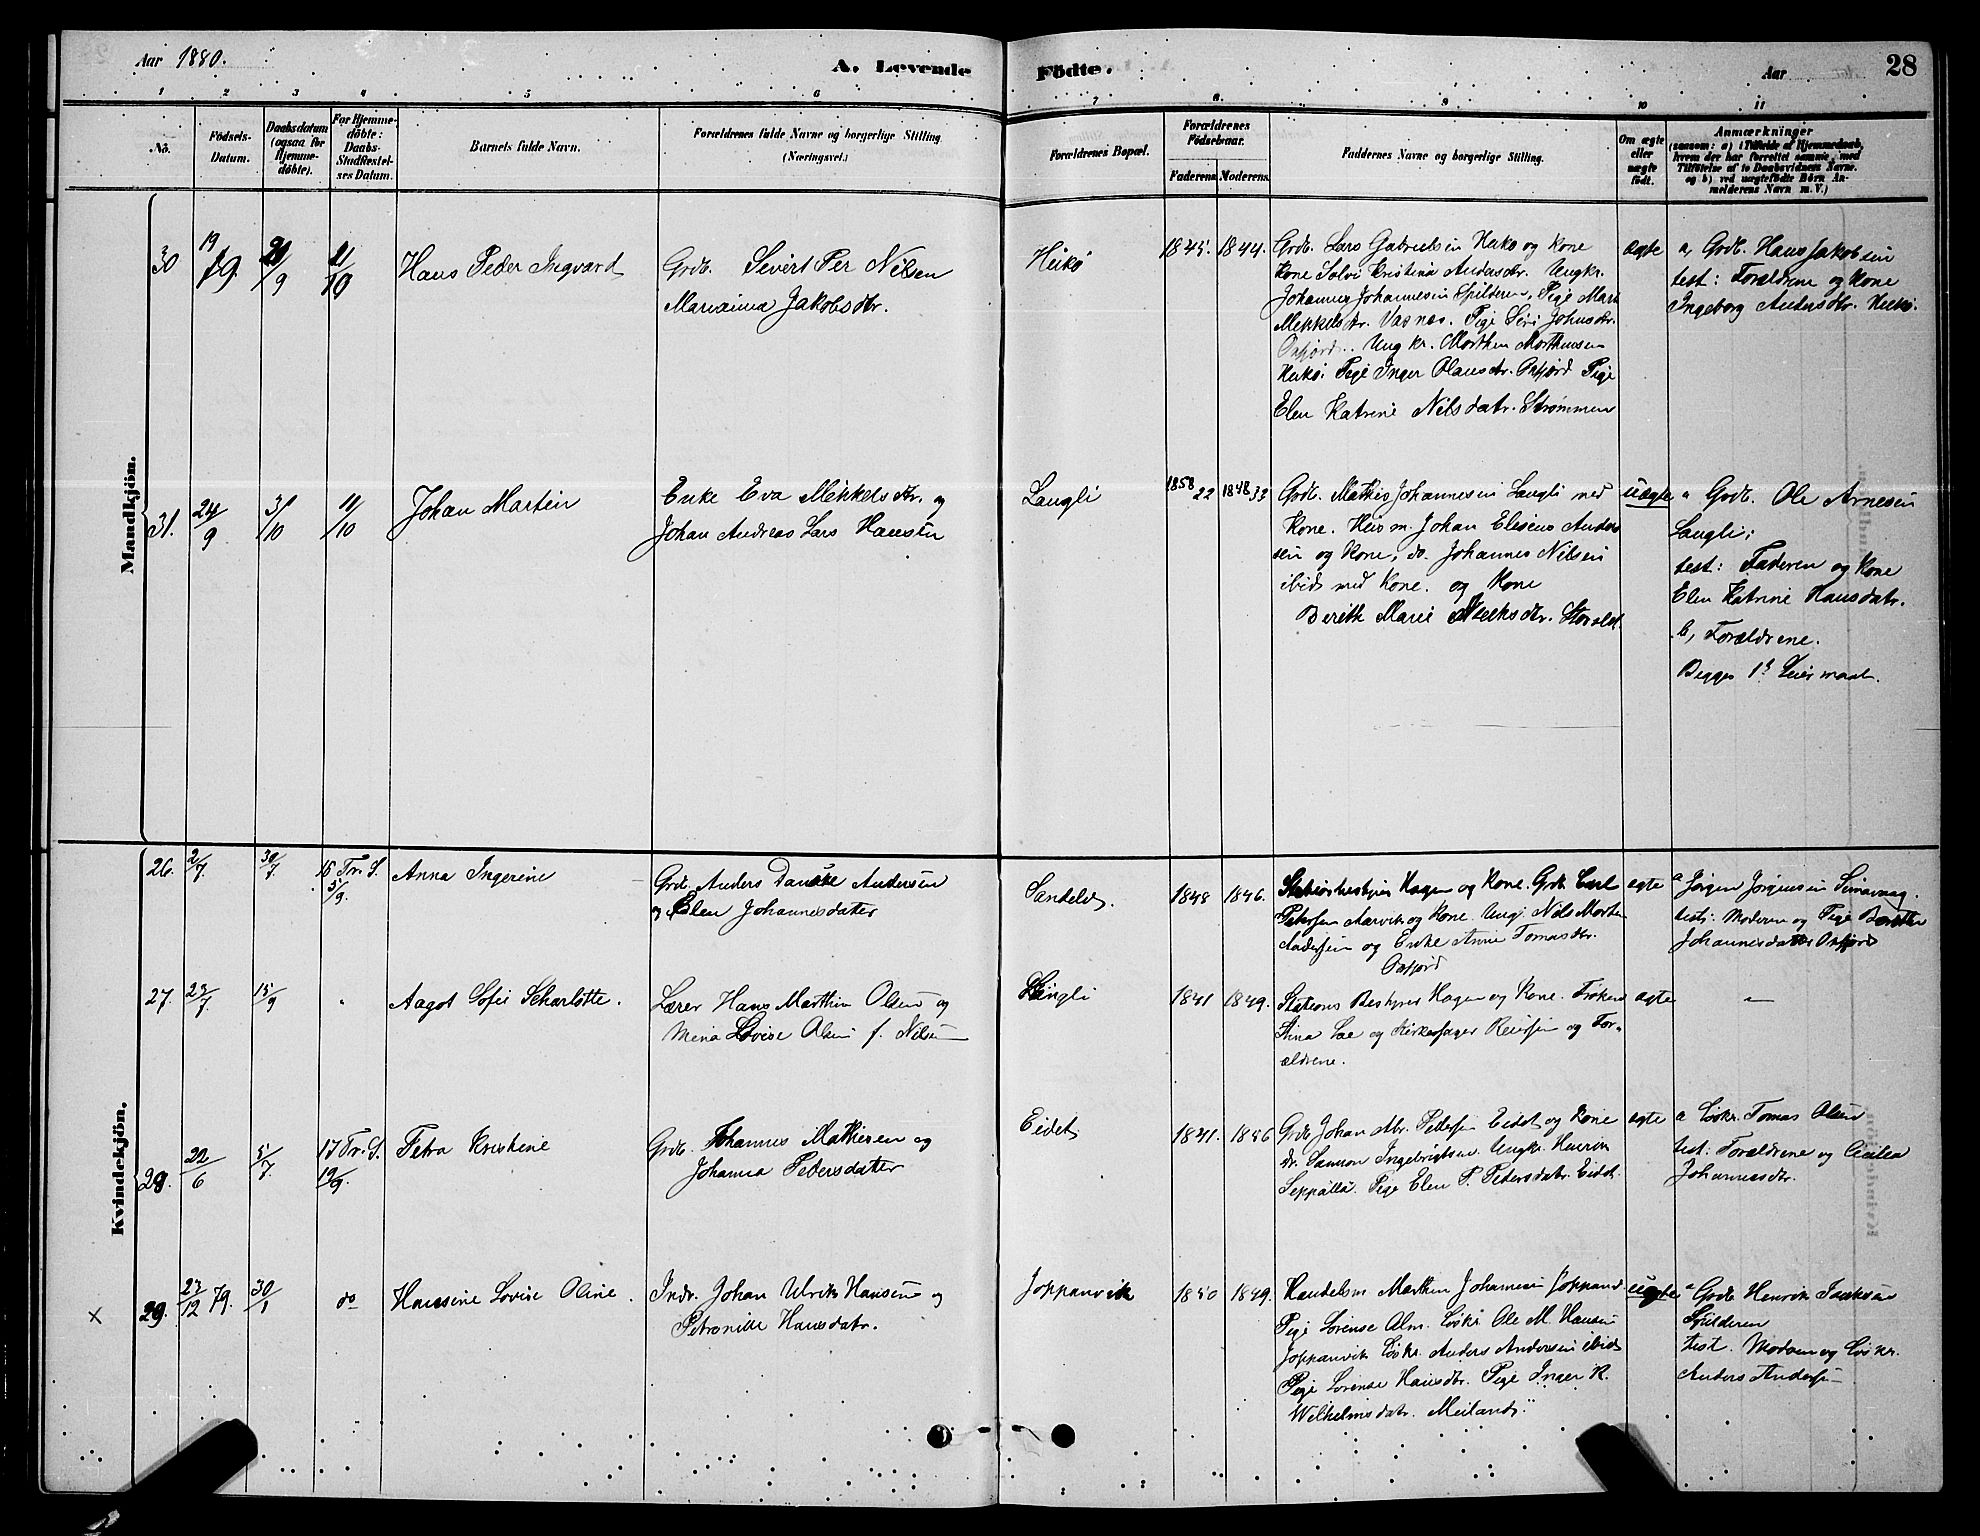 Aar 1880.
A. Levende Födte.
Aar
28
1 2 3 4 5 6 7 8. 9 10 11
No.
Födsels-
Datum.
Daabsdatum
(ogsaa for
Hjemme-
döbte).
For Hjemme-
döbte:
Daabs-
Stadfæstel-
ses Datum.
Barnets fulde Navn.
Forældrenes fulde Navne og borgerlige Stilling
(Næringsvei.)
Forældrenes Bopæl.
Forældrenes
Födselsaar.
Faderens. Moderens.
Faddernes Navne og borgerlige Stilling.
Om ægte
eller
uægte
födt.
Anmærkninger
(saasom: a) i Tilfælde af Hjemmedaab,
hvem der har forrettet samme, med
Tilföielse af to Daabsvidners Navne.
og b) ved uægtefödte Börn An-
melderens Navn m. V.)
Mandkjön.
30
19/9.
20/9
11/10
Hans Peder Ingvard
Grdb. Sivert Per Nilsen
Marianna Jakobsdtr.
Heikø
1845. 1844.
Grdb. Lars Gabrielsen Heikø og Kone
Kone Solvi Kristina Andersdtr. Ungkr.
Johannes Johannesen Spilderen, Pige Marit
Mekkelsdtr. Vasnes. Pige Siri Johnsdtr.
Oxfjord. Ungkr. Morthen Morthensen
Heikø. Pige Inger Olausdtr. Oxfjord Pige
Elen Katrine Nilsdatr. Strømmen
ægte
a, Grdb. Hans Jakobsen
test: Forældrene og Kone
Ingeborg Andersdtr. Heikø.
31.
24/9
3/10
11/10
Johan Martin
Enke Eva Mekkelsdtr. og
Johan Andreas Lars Hansen
Langli
1858 22 1848 32
Grdb. Mathis Johannesen Langli med
Kone. Huusm. Johan Eliseus Ander-
sen og Kone, do. Johannes Nilsen
ibid med Kone. og Kone
Berith Marie
uægte
a Grdb. Ole Arnesen
Langli;
test: Faderen og Kone
Elen Katrine Hansdatr.
b, Forældrene.
Begges 1ste Leiermaal.
Kvindekjön.
26.
2/7.
30/7
15 Tr. S.
5/9.
Anna Ingerine
Grdb. Anders Daniel Andersen
og Elen Johannesdater
Sandeld.
1848 1846.
Stationsbestyrer Hagen og Kone. Grdb. Carl
Petersen Aarvik og Kone. Ungk. Nils Morten
Andersen og Enke Anne Tomasdtr.
Oxfjord
ægte
a Jørgen Jørgensen
test: Moderen og Pige Berethe
Johannesdatter Oxfjord
27.
23/7
15/9
Aagot Sofie Scharlotte.
Lærer Hans Marthin Olsen og
Mina Lovise Olsen f. Nilsen
Langli
1841 1849.
Stations Bestyrer Hagen og Kone. Frøken
Stina Lae og Kirkesanger Reiersen og For-
ældrene.
ægte
28.
22/6
5/7
17 Tr. S.
19/9.
Petra Kristine
Grdb. Johannes Mathisen og
Johanna Pedersdater
Eidet
1841. 1856
Grdb. Johan Abr. Pedersen Eidet og Kone
Dr. Samson Ingebrigtsen Ungkr. Henrik
Seppälä. Pige Elen P. Petersdatr. Eidet.
ægte
a Løskr. Tomas Olsen
test: Forældrene og Cicilia
Johannesdtr.
×
29.
23/12 79.
30/1
do
Hansine Lovise Oline.
Indr. Johan Ulrik Hansen og
Petronille Hansdatr.
Joppanvik
1850 1849.
Handelsm. Marthin Johannesen Joppanv.
Pige Lorense Alm. Løskr Ole M. Hansen
Joppanvik Løskr. Anders Andersen ibid
Pige Lorense Hansdtr. Pige Inger K.
Wilhelmsdatr. Meiland.
uægte
a Grdb Henrik Isaksen
Spilderen
test. Moderen og Løskr.
Anders Andersen